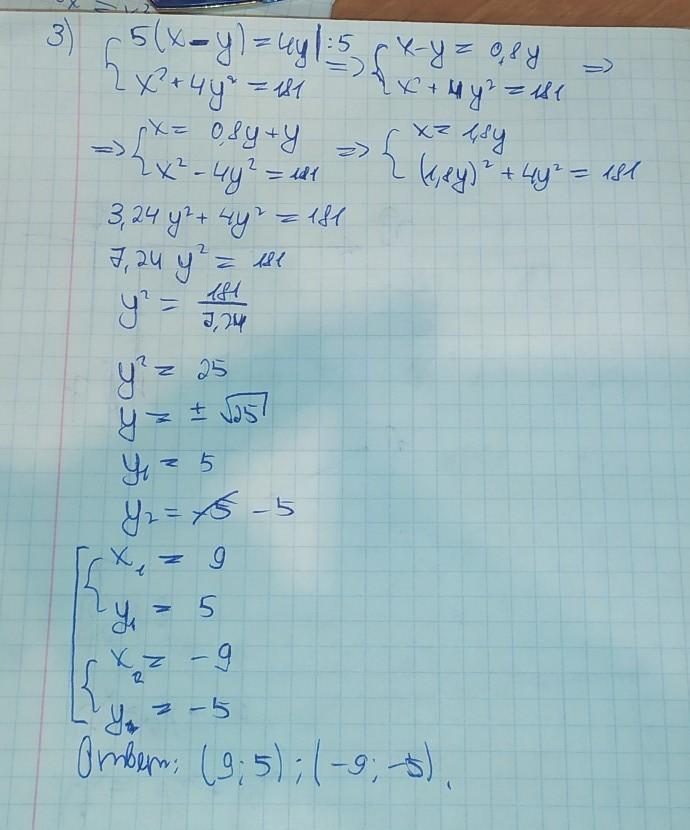 3) { 5(x-y) = 4y | :5 => { x-y = 0,8y =>
x² + 4y² = 181 x² + 4y² = 181
=> { x = 0,8y + y => { x = 1,8y
x² - 4y² = 181 (1,8y)² + 4y² = 181
3,24y² + 4y² = 181
7,24 y² = 181
y² = 181/7,24
y² = 25
y = ± √25
y₁ = 5
y₂ = -5
x₁ = 9
y₁ = 5
x₂ = -9
y₂ = -5
Ответ: (9; 5); (-9; -5).